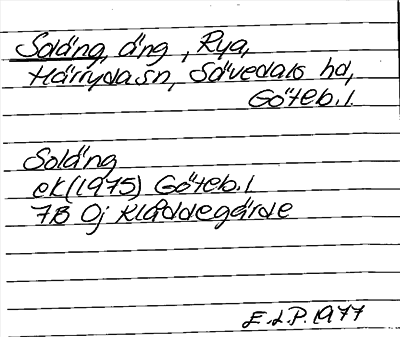 Soläng, äng, Rya,
Härryda sn, Sävedals hd,
Göteb. l.
Soläng
ek (1975) Göteb. l
7B 0j Kläddegärde
E.L.P. 1977